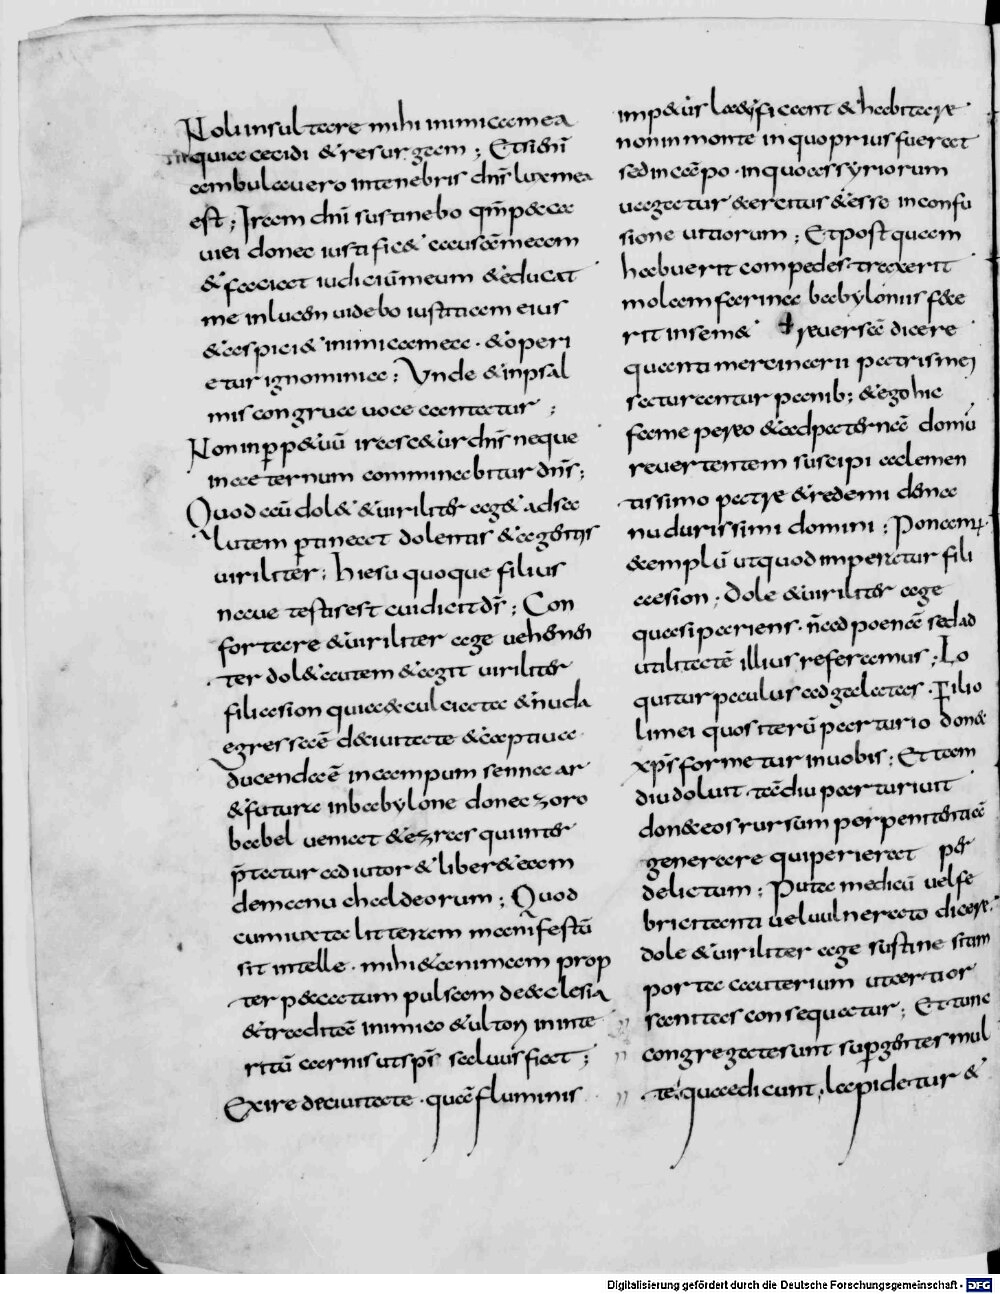 Noli insultare mihi inimica mea
quia cecidi & resurgam ; Et si sedi
ambulauero in tenebris dn̄s lux mea
est ; Iram dn̄i sustinebo qm̄ p&ca
uiei donec iustific& causam meam
& faciat iudiciū meum & educat
me in lucem uidebo iustitiam eius
& aspici& inimica mea · & operi
etur ignominia ; Unde & in psal
mis congrua uoce cantatur ;
Non in ꝑp&uū irasc&ur dn̄s neque
in aeternum comminabitur dn̄s ;
Quod aū dol& & uirilit̄ ag& ad sa
lutem ꝑtineat dolentis & agentis
uiriliter ; hiesu quoque filius
naue testis est cui dicit dn̄s ; Con
fortare & uiriliter age uehem̄
ter dol& autem & agit uirilit̄
filia sion quia & culciata & nuda
egressa ē de ciuitate & captiua
ducenda ē in campum sennaar
& futura in babylone donec zoro
babel ueniat & ezras qui int̄
p̄tatur adiutor & liber& eam
de manu chaldeorum ; Quod
cum iuxta litteram manifestū
sit intelle · mihi & animam prop
ter peccatum pulsam de ecclesia
& traditā inimico & ultori in inte
ritū carnis ut sp̄s saluus fiat ;
Exire de ciuitate · quā fluminis
imp&us laetificant & habitare
non in monte in quo prius fuerat
sed in cāpo · in quo assyriorum
uagatur exercitus & esse in confu
sione uitiorum ; Et post quam
habuerit compedes · traxerit
molam farinae babyloniis fece
rit in sem& reuersa dicere
quanti mercinarii patris mei
saturantur panib; & ego hic
fame pereo & ad pat̄nā domū
reuertentem suscipi a clemen
tissimo patre & redemi de ma
nu durissimi domini ; Ponam
exemplū ut quod imperatur fili
ae sion ; Dole & uirilit̄ age
quasi pariens · n̄ ad poenā sed ad
utilitatē illius referamus ; Lo
quitur paulus ad galatas · Filio
li mei quos iterū parturio don&
xp̄s formetur in uobis ; Et tam
diu doluit · tādiu parturiuit
donec eos rursum per penitentiā
generare qui perierat per
delictum ; Puta medicū uel fe
bricitanti uel uulnerato dicere
dole & uiriliter age sustine sitim
porta cauterium ut certior
sanitas consequatur ; Et nunc
congregatae sunt suꝑ gentes mul
te quae dicunt · lapidetur &